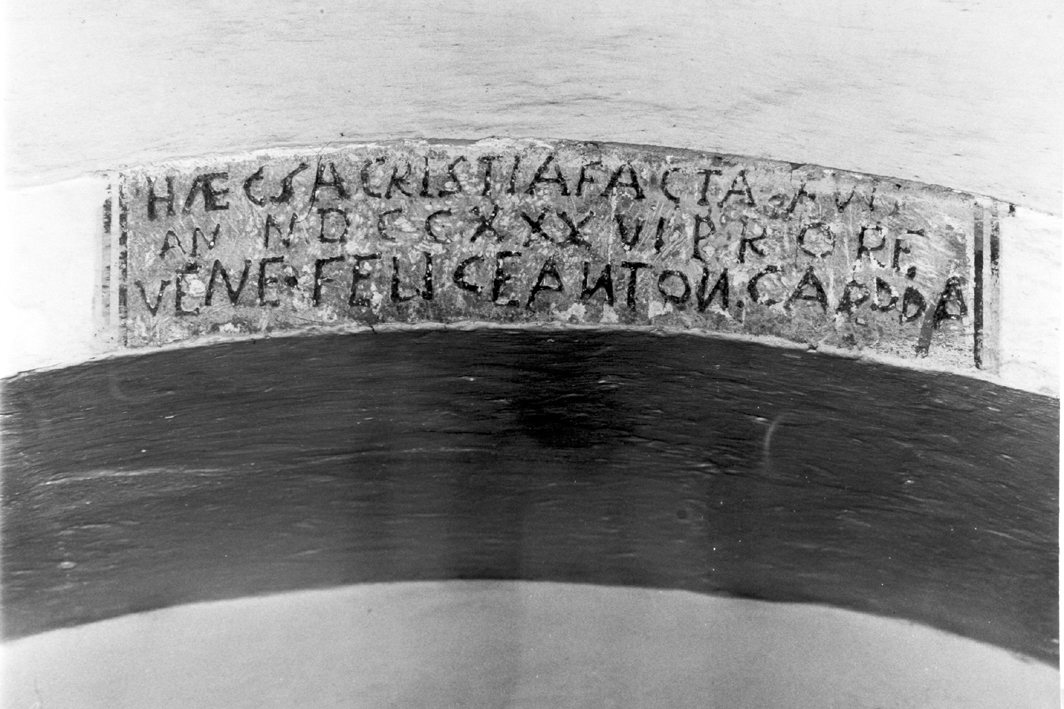 HÆC SACRISTIA FACTA FVI
AN NDCCXXXVI PRO RF
VENE FELICE ANTON. CAPDDA